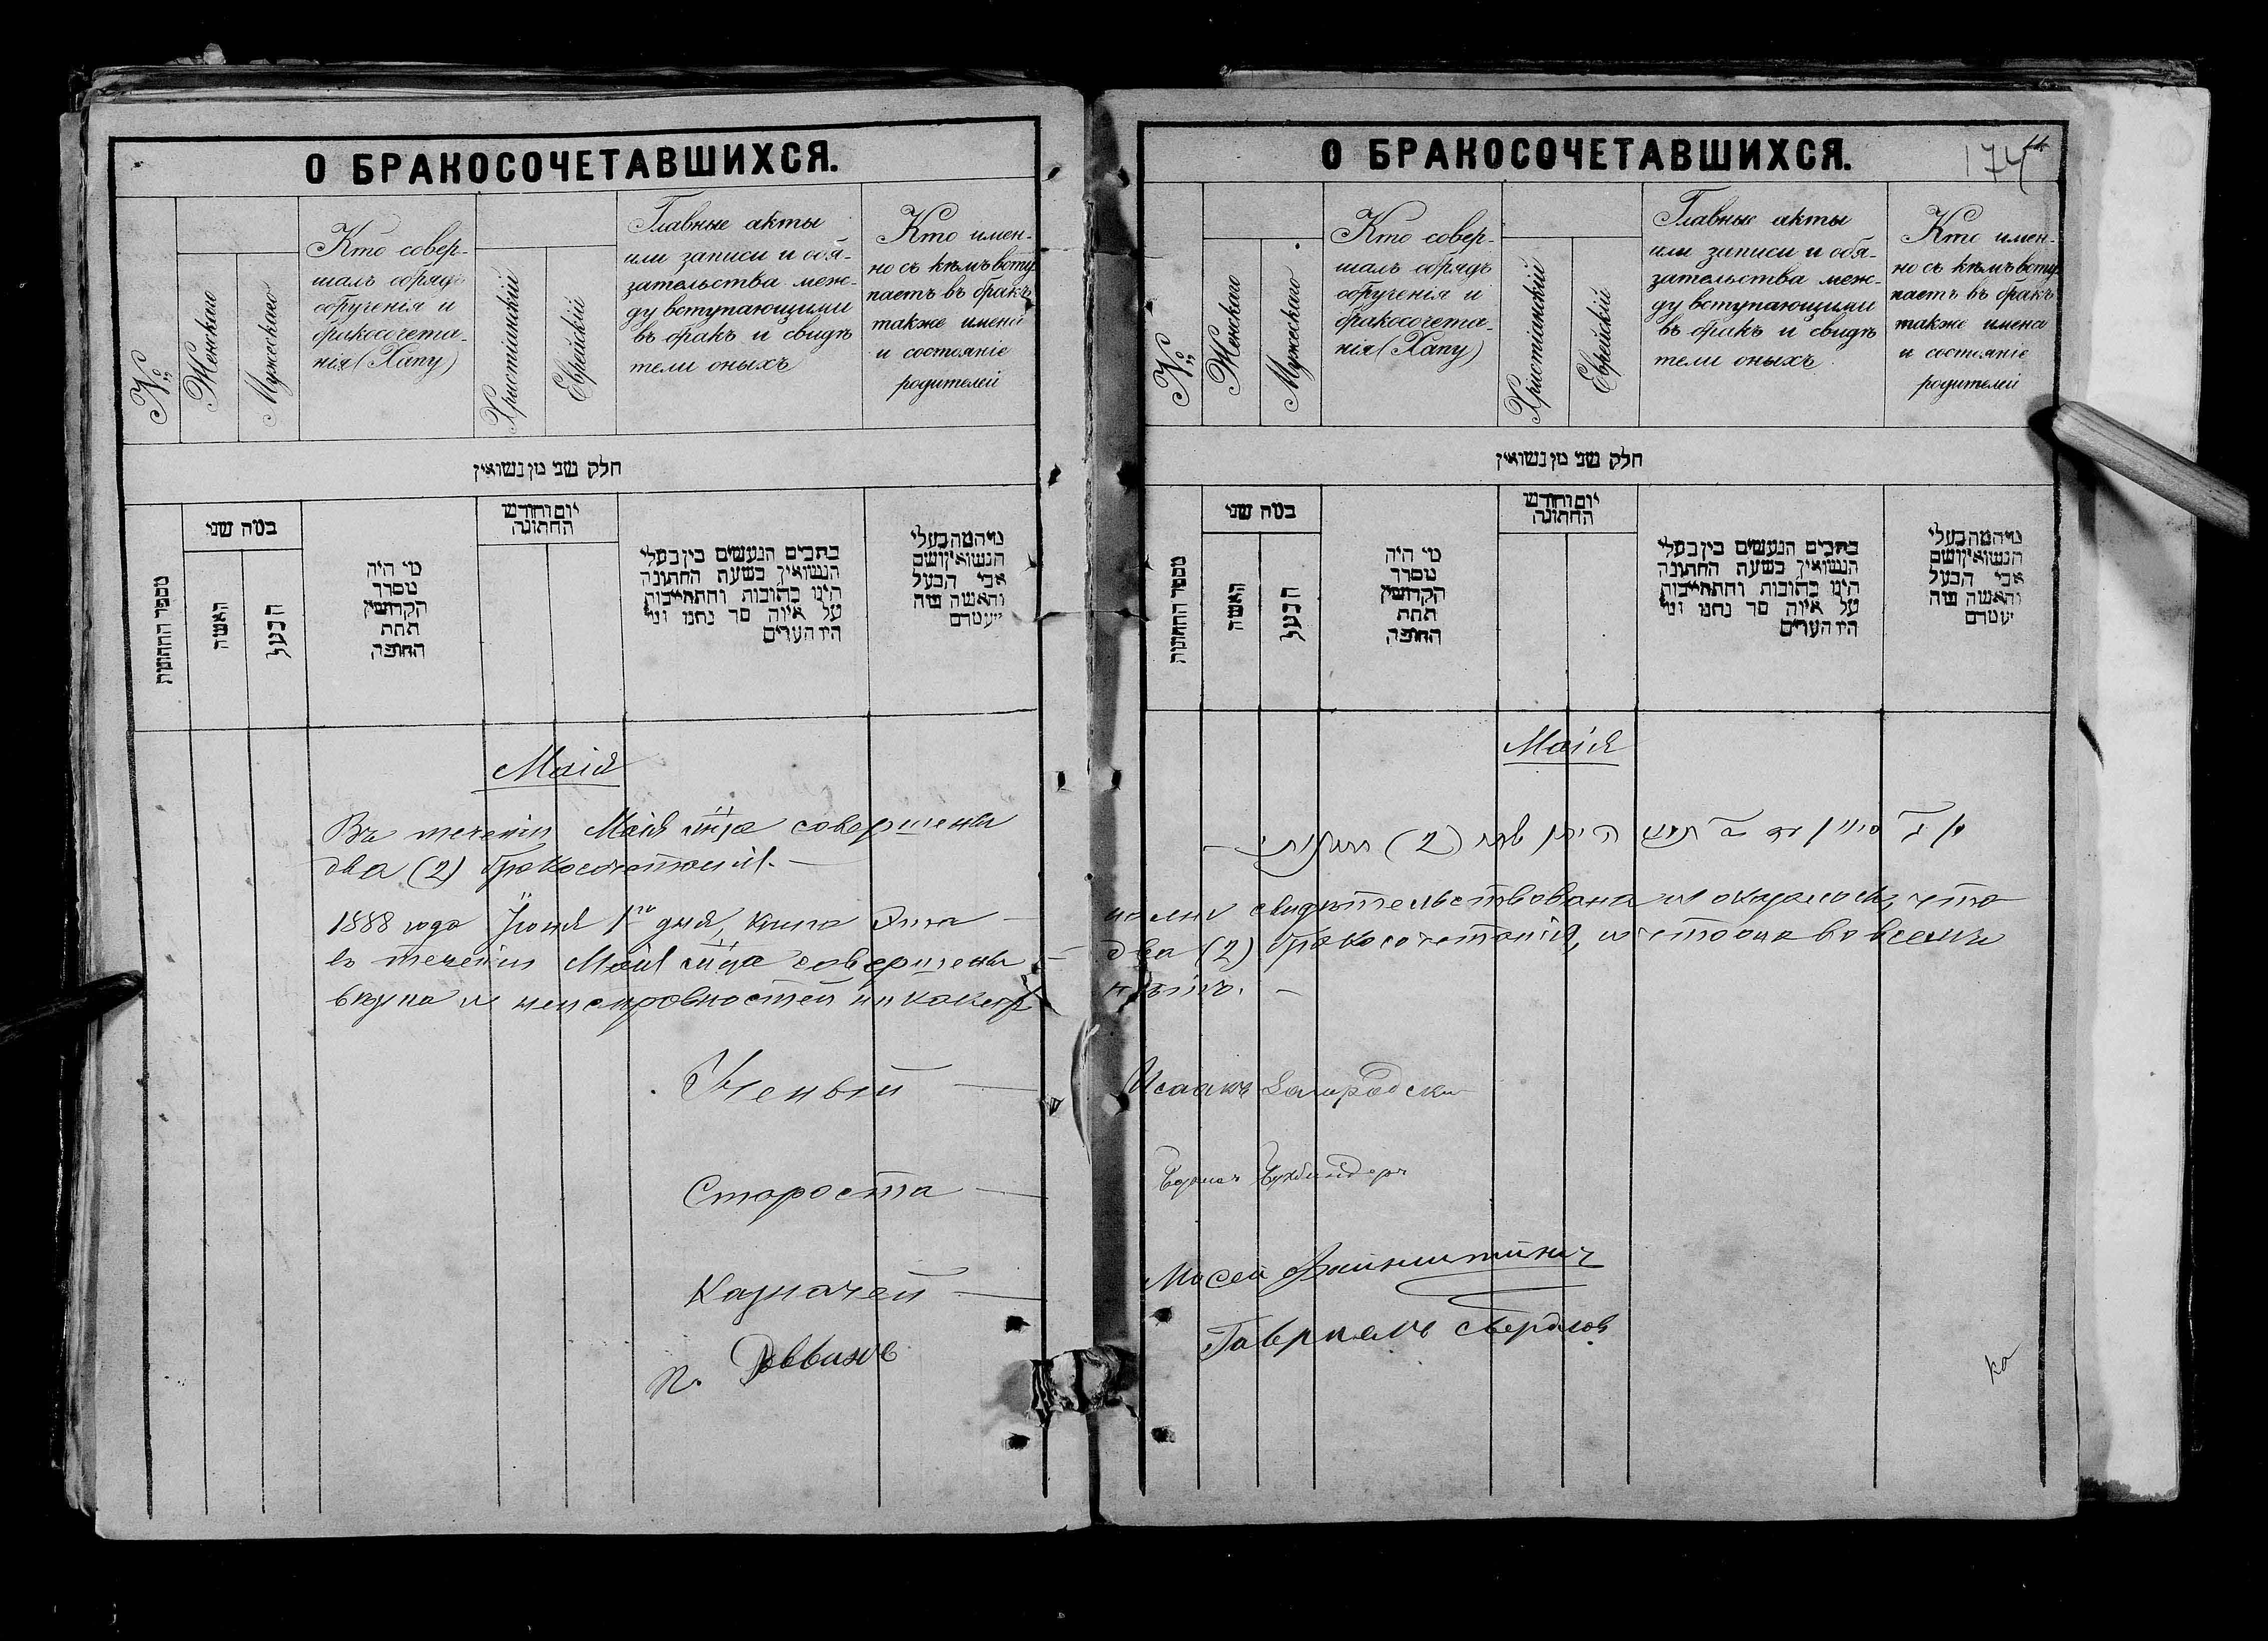 О БРАКОСОЧЕТАВШИХСЯ.
№
Женскаго
Мужескаго
Кто совер-
шалъ обрядъ
обрученія и
бракосочета-
нія (Хапу)
Христіанскій
Еврейскій
Главные акты
или записи и обя-
зательства меж-
ду вступающими
въ бракъ и свидѣ
тели оныхъ
Кто имен-
но съ кѣмъ всту
паетъ въ бракъ
также имена
и состояніе
родителей
חלק שני מן נשואין
מספר החתונות
כמה שני
האשה
הבעל
מי היה
מסדר
הקדושין
תחת
החופה
יום וחודש
החתונה
כתבים הנעשים בין בעלי
הנשואין בשעת החתונה
היינו כתובות והתחייבות
על איזה סך נתנו ומי
היו העדים
מי המה בעלי
הנשואין ושם
אבי הבעל
והאשה ומה
מעמדם
Маія
Въ теченіи Маія м-ца совершены
два (2) бракосочетанія. —
1888 года Іюня 1го дня, книга Эта —
въ теченіи Маія м-ца совершены —
вкупа и неисправностей никаких
Ученый —
Староста —
Казначей —
п. Раввинъ
О БРАКОСОЧЕТАВШИХСЯ.
174
№
Женскаго
Мужескаго
Кто совер-
шалъ обрядъ
обрученія и
бракосочета-
нія (Хапу)
Христіанскій
Еврейскій
Главные акты
или записи и обя-
зательства меж-
ду вступающими
въ бракъ и свидѣ
тели оныхъ
Кто имен-
но съ кѣмъ всту
паетъ въ бракъ
также имена
и состояніе
родителей
חלק שני מן נשואין
מספר החתונות
כמה שני
האשה
הבעל
מי היה
מסדר
הקדושין
תחת
החופה
יום וחודש
החתונה
כתבים הנעשים בין בעלי
הנשואין בשעת החתונה
היינו כתובות והתחייבות
על איזה סך נתנו ומי
היו העדים
מי המה בעלי
הנשואין ושם
אבי הבעל
והאשה ומה
מעמדם
Маія
(2)
нами свидѣтельствована и оказалось, что
два (2) бракосочетанія, и
нѣтъ. —
Исаакъ Загородски
Мосей Файнштейнъ
Гавриелъ Свердловъ